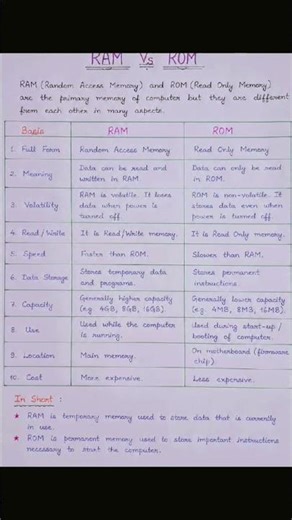 RAM Vs ROM
RAM (Random Access Memory) and ROM (Read Only Memory)
are the primary memory of computer but they are different
from each other in many aspects.
Basis RAM ROM
1. Full Form Random Access Memory Read Only Memory
2. Meaning Data can be read and written in RAM Data can only be read in ROM.
3. Volatility RAM is volatile. It loses data when power is turned off. ROM is non-volatile. It stores data even when power is turned off.
4. Read/Write It is Read/Write memory. It is Read Only memory.
5. Speed Faster than ROM. Slower than RAM.
6. Data Storage Stores temporary data and programs. Stores permanent instructions.
7. Capacity Generally higher capacity (e.g. 4GB, 8GB, 16GB). Generally lower capacity (e.g. 4MB, 8MB, 16MB).
8. Use Used while the computer is running. Used during start-up / booting of computer.
9. Location Main memory. On motherboard (firmware chip).
10. Cost More expensive. Less expensive.
In Short :
★ RAM is temporary memory used to store data that is currently
in use.
★ ROM is permanent memory used to store important instructions
necessary to start the computer.